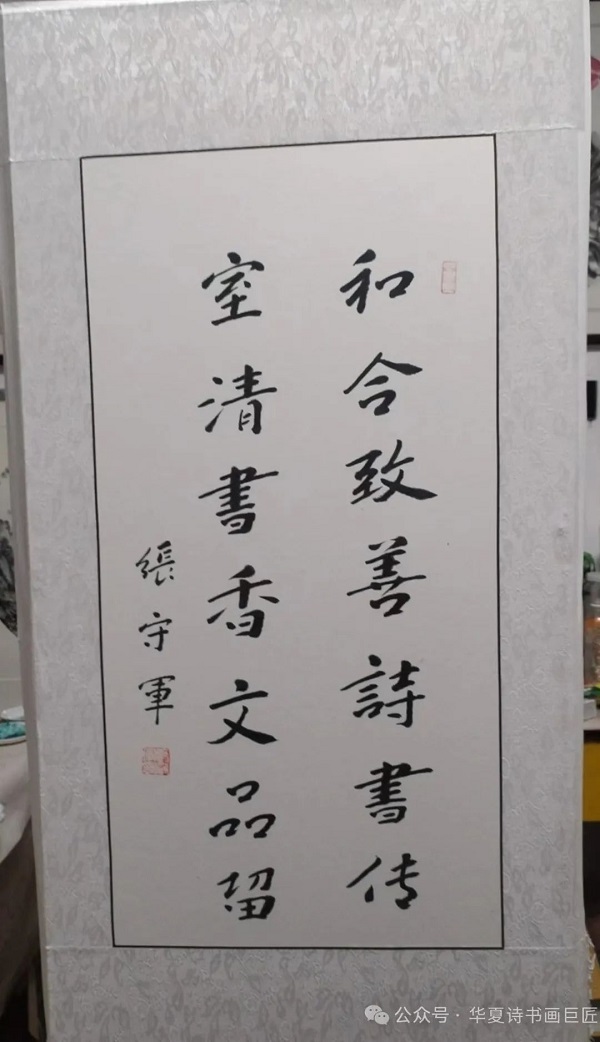 和合致善詩書传
室清書香文品留
張守軍
公众号·华夏诗书画巨匠